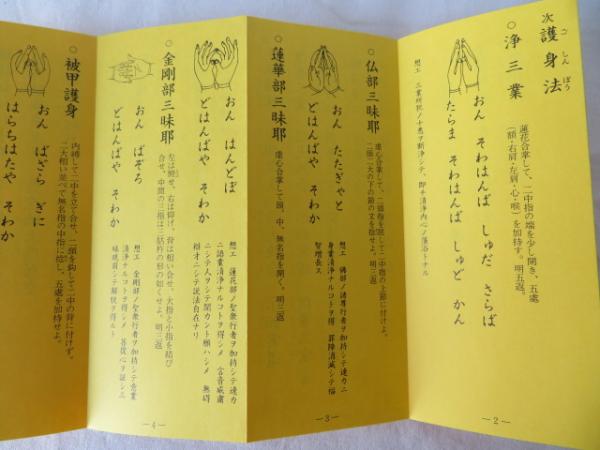 次 護身法
ごしんぼう
○浄三業
蓮花合掌して、二中指の端を少し開き、五處
(額・右肩・左肩・心・喉)を加持す。明五返。
おん そわはんば しゅだ さらば
たらま そわはんば しゅど かん
想エ 三業所犯ノ十悪ヲ断浄シテ、即チ清浄内心ノ澡浴トナル
―2―
○仏部三昧耶
虚心合掌して、二頭指を屈して二中指の上節に付け、
二頭二大の下の節の文を指せよ。明三返
おん たたぎゃと
どはんばや そわか
想エ 佛部ノ諸尊行者ヲ加持シテ速カニ
身業清浄ナルコトヲ得 罪障消滅シテ福
智増長ス
○蓮華部三昧耶
虚心合掌して頭、中、無名指を開く。明三返
―3―
おん はんどぼ
どはんばや そわか
想エ 蓮花部ノ聖衆行者ヲ加持シテ速カ
ニ語業清浄ナルコトヲ得シメ 言音威肅
ニシテ人ヲシテ聞カント願ハシメ 無碍
辯才ニシテ説法自在ナリ
○金剛部三昧耶
左は覆せ、右は仰け、背は相い合せ、大指と小指を結び
合せ、中間の三指は三鈷杵の形の如くせよ。明三返
おん ばぞろ
どはんばや そわか
想エ 金剛部ノ聖衆行者ヲ加持シテ意業
清浄ナルコトヲ得シメ 菩提心ヲ証シ三
昧現前シテ解脱ヲ得ルト
―4―
○被甲護身
内縛して二中を立て合せ、二頭を鉤して二中の背に付けず。
二大相い並べて無名指の中指に捻し、五處を加持せよ。
おん ばざら ぎに
はらちはたや そわか